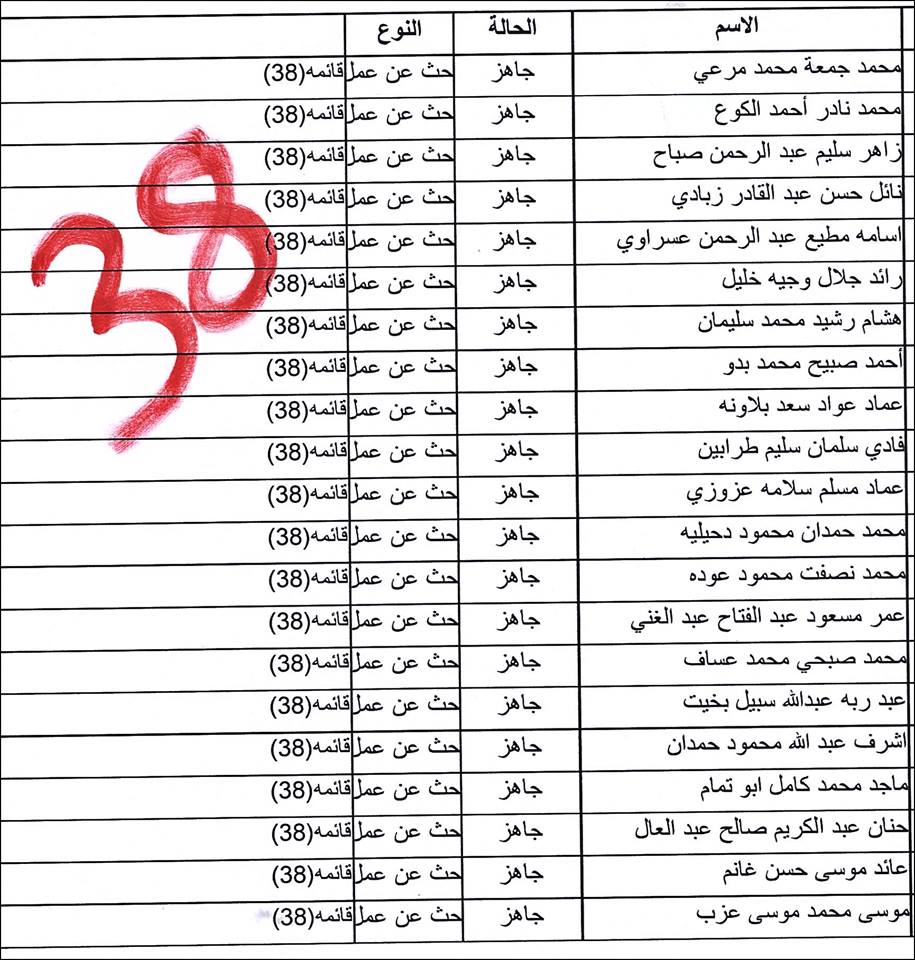 الاسم الحالة النوع
محمد جمعة محمد مرعي جاهز حث عن عمل قائمه(38)
محمد نادر أحمد الكوع جاهز حث عن عمل قائمه(38)
زاهر سليم عبد الرحمن صباح جاهز حث عن عمل قائمه(38)
نائل حسن عبد القادر زبادي جاهز حث عن عمل قائمه(38)
اسامه مطيع عبد الرحمن عسراوي جاهز حث عن عمل قائمه(38)
رائد جلال وجيه خليل جاهز حث عن عمل قائمه(38)
هشام رشيد محمد سليمان جاهز حث عن عمل قائمه(38)
أحمد صبيح محمد بدو جاهز حث عن عمل قائمه(38)
عماد عواد سعد بلاونه جاهز حث عن عمل قائمه(38)
فادي سلمان سليم طرابين جاهز حث عن عمل قائمه(38)
عماد مسلم سلامه عزوزي جاهز حث عن عمل قائمه(38)
محمد حمدان محمود دحيليه جاهز حث عن عمل قائمه(38)
محمد نصفت محمود عوده جاهز حث عن عمل قائمه(38)
عمر مسعود عبد الفتاح عبد الغني جاهز حث عن عمل قائمه(38)
محمد صبحي محمد عساف جاهز حث عن عمل قائمه(38)
عبد ربه عبدالله سبيل بخيت جاهز حث عن عمل قائمه(38)
اشرف عبد الله محمود حمدان جاهز حث عن عمل قائمه(38)
ماجد محمد كامل ابو تمام جاهز حث عن عمل قائمه(38)
حنان عبد الكريم صالح عبد العال جاهز حث عن عمل قائمه(38)
عائد موسى حسن غانم جاهز حث عن عمل قائمه(38)
موسى محمد موسى عزب جاهز حث عن عمل قائمه(38)
38